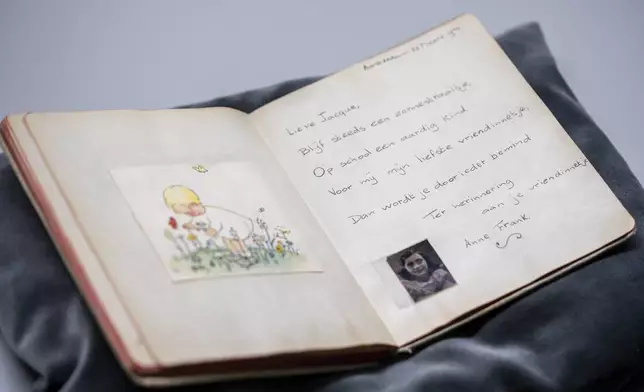 Amsterdam 23 Maart 1942
Lieve Jacque,
Blijf steeds een zonnestraaltje,
Op school een aardig kind
Voor mij mijn liefste vriendinnetje,
Dan wordt je door ieder bemind
Ter herinnering
aan je vriendinnetje
Anne Frank